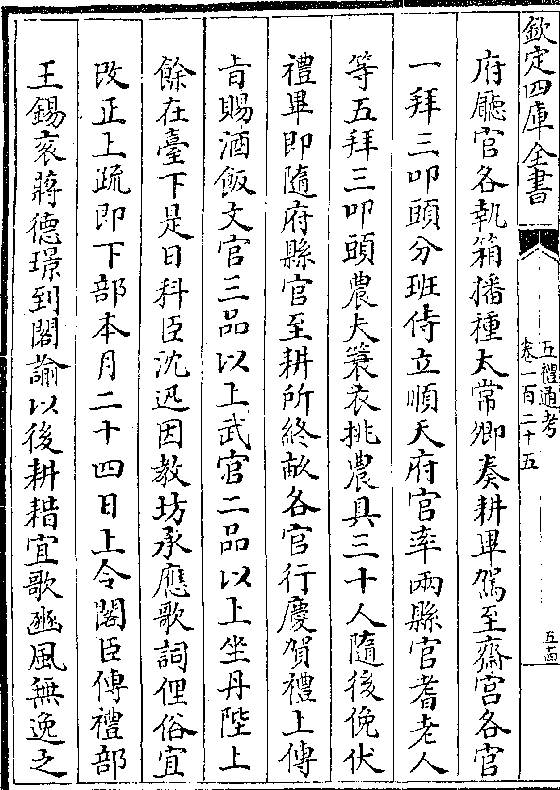 欽定四庫全書
五禮通考
卷一百二十五
五西
府廳官各執箱播種太常卿奏耕畢駕至齋宮各官
一拜三叩頭分班侍立順天府官率兩縣官耆老人
等五拜三叩頭農夫簑衣挑農具三十人隨後俛伏
禮畢即隨府縣官至耕所終畝各官行慶賀禮上傳
旨賜酒飯文官三品以上武官二品以上坐丹陛上
餘在臺下是日科臣沈迅因教坊承應歌詞俚俗宜
改正上疏即下部本月二十四日上令閣臣傳禮部
王錫衮蔣德璟到閣諭以後耕耤宜歌豳風無逸之